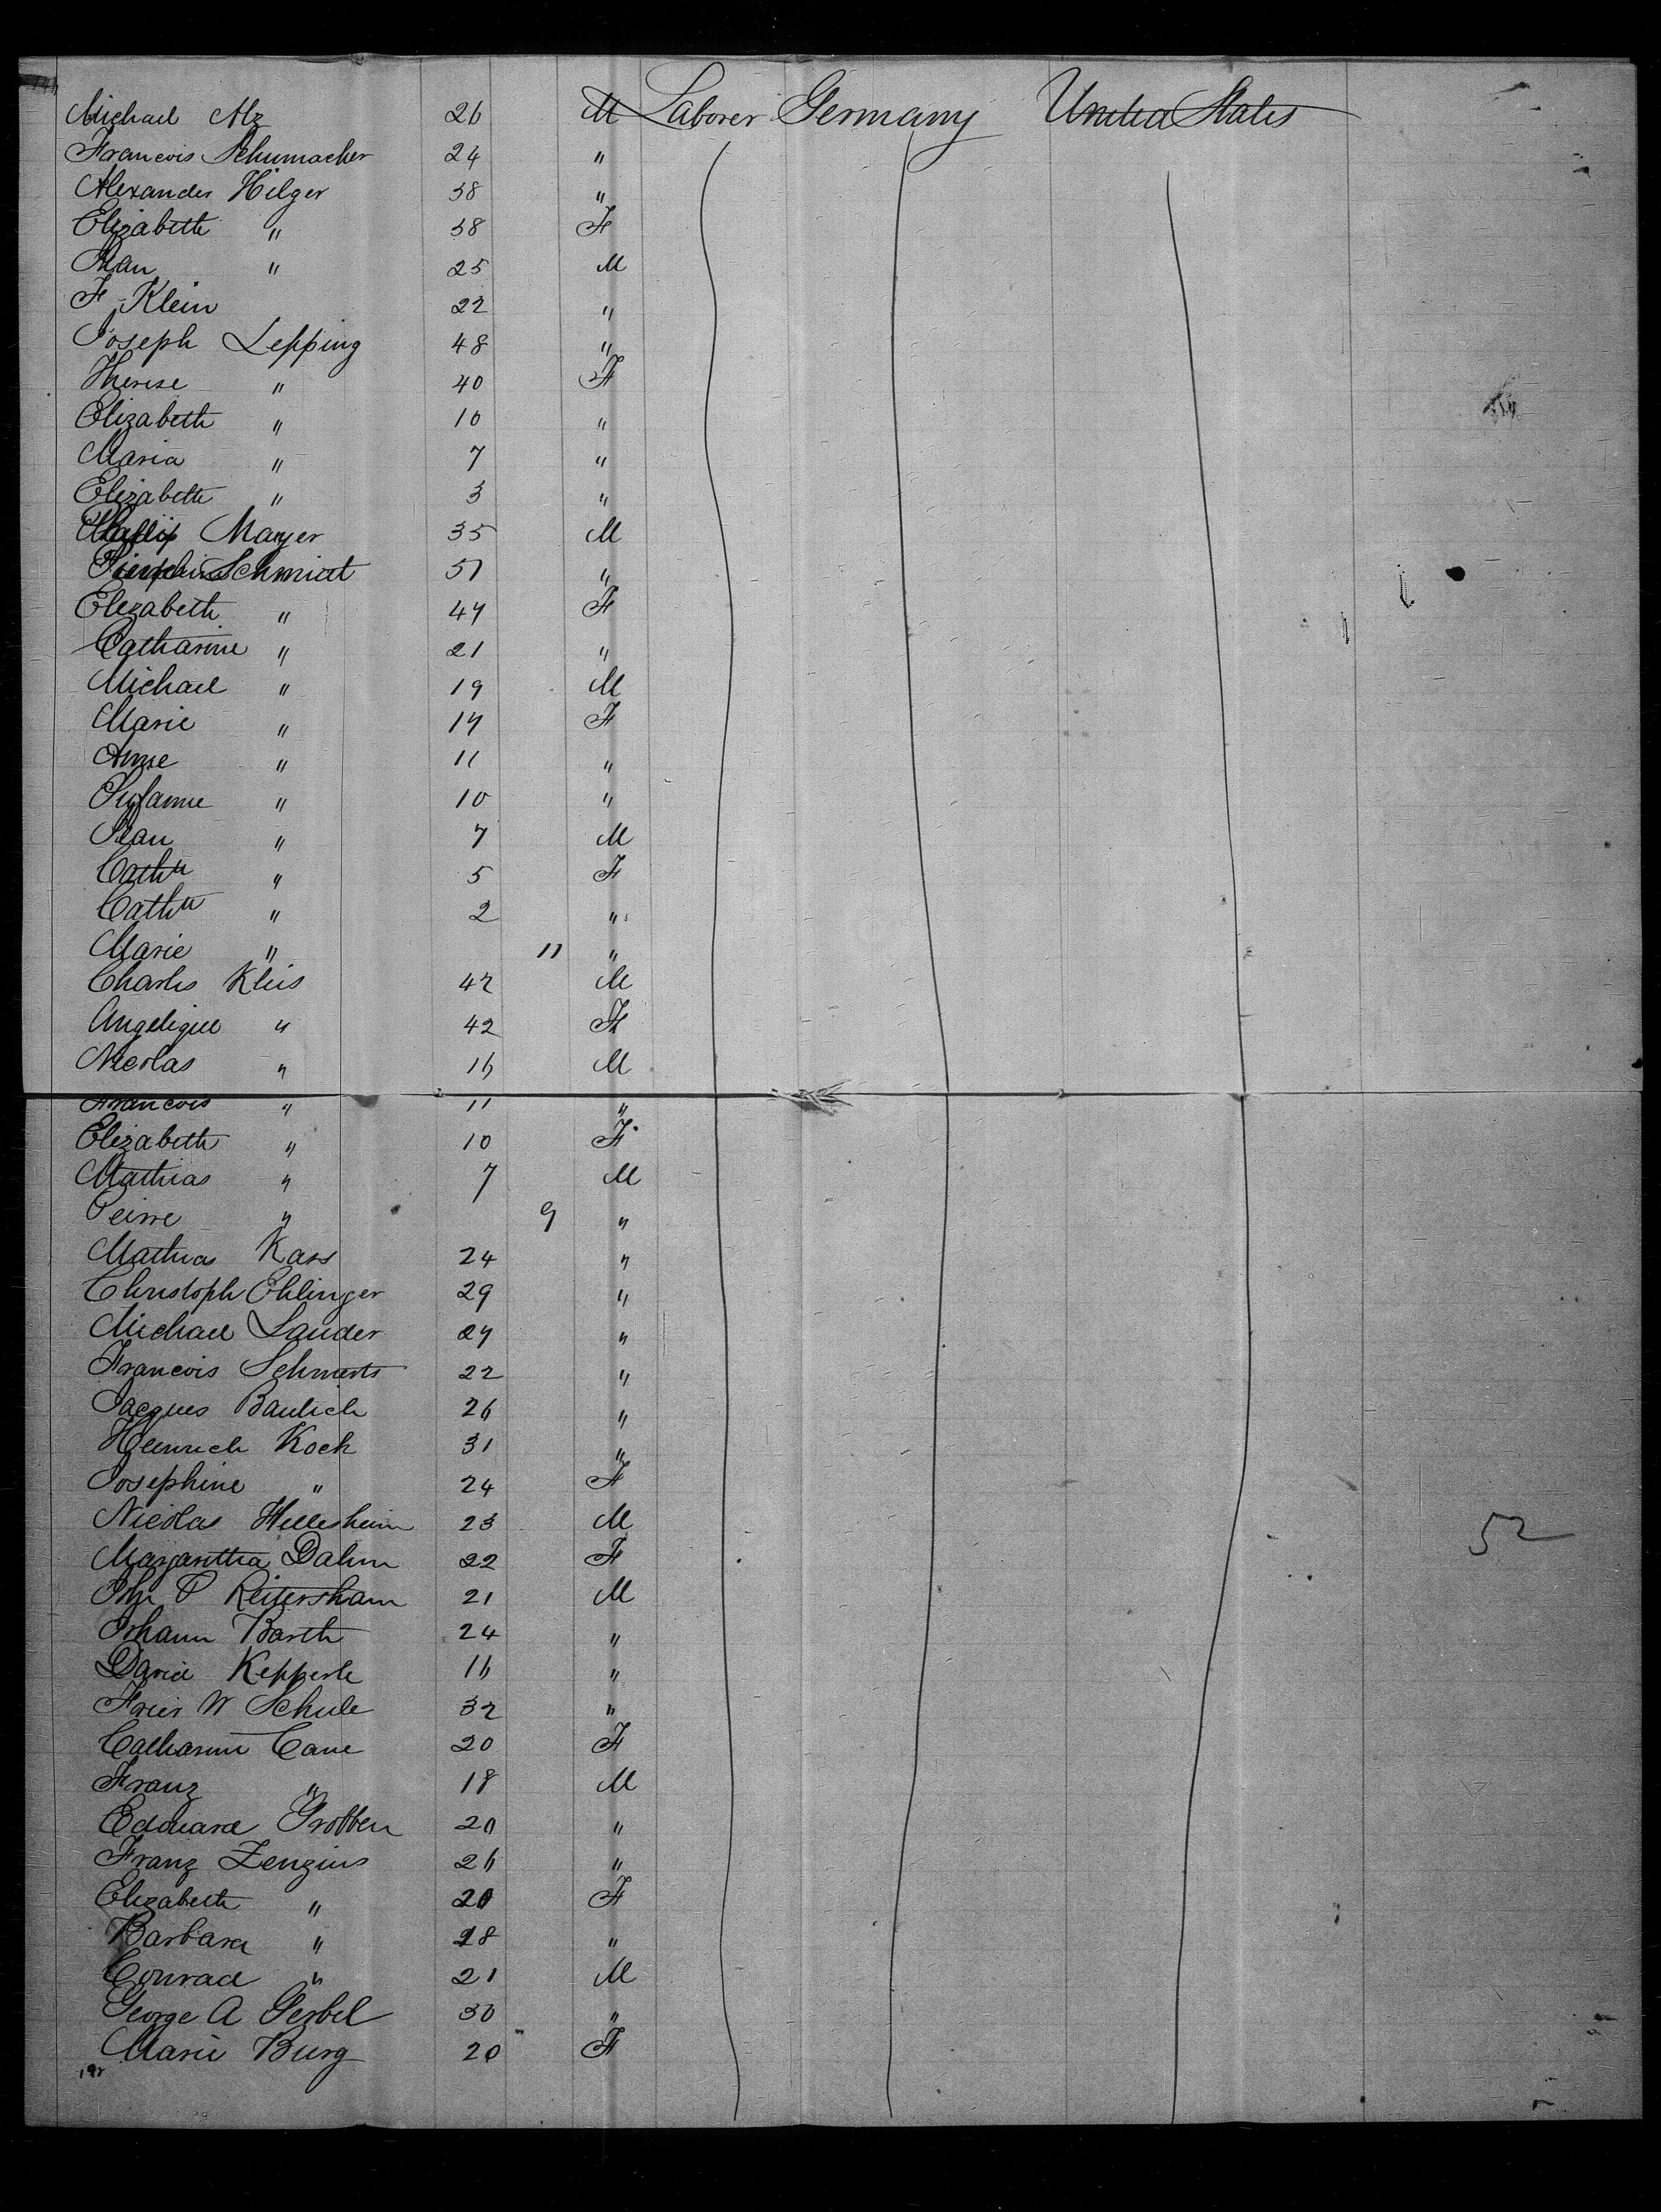 Michael Alz 26 M Laborer Germany United States
Francois Schumacher 24 "
Alexander Hilger 38 "
Elizabeth " 38 F
" 25 M
F Klein 22 "
Joseph Lepping 48 "
Therese " 40 F
Elizabeth " 10 "
Maria " 7 "
Elizabeth " 3 "
Mayer 35 M
Schmidt 51 "
Elezabeth " 47 F
Catharine " 21 "
Michael " 19 M
Marie " 14 F
Anne " 11 "
Susanne " 10 "
Jean " 7 M
Cathne " 5 F
Cathne " 2 "
Marie " 11 "
Charles Kleis 42 M
Angelique " 42 F
Nicolas " 16 M
Francois " 11 "
Elizabeth " 10 F
Mathias " 7 M
Peirre " 9 "
Mathias Kass 24 "
Christoph Ehlinger 29 "
Michael Lauder 27 "
Francois Schmerts 22 "
Jacques Baulich 26 "
Heinrich Koch 31 "
Josephine " 24 F
Nicolas Hillesheim 23 M
Margarettha Dahm 22 F
Joh P Reitersham 21 M
Johann Barth 24 "
David Kepperle 16 "
Frier W Schule 32 "
Catharine Cane 20 F
Franz " 18 M
Edouard Grobben 20 "
Franz Zenzius 26 "
Elizabeth " 20 F
Barbara " 28 "
Conrad " 21 M
George A Gerbel 30 "
Marie Burg 20 F
52